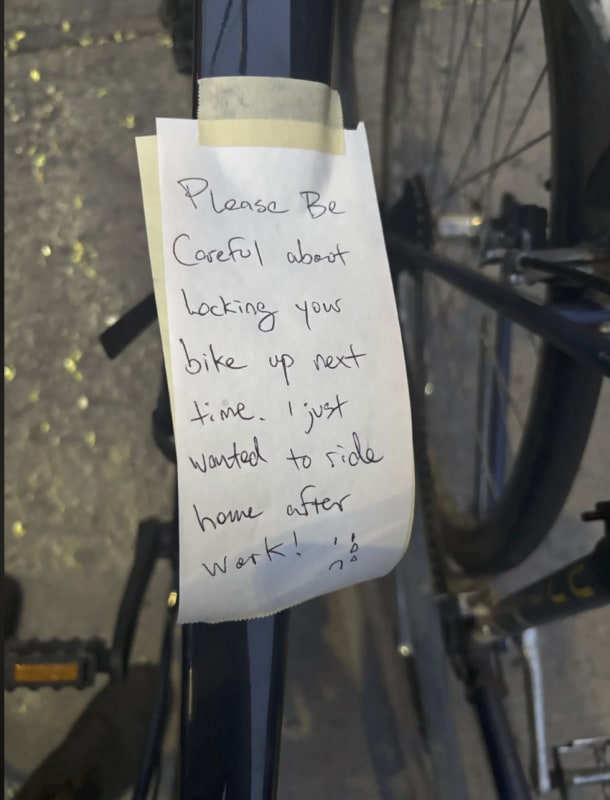 Please Be
Careful about
Locking your
bike up next
time. I just
wanted to ride
home after
work!